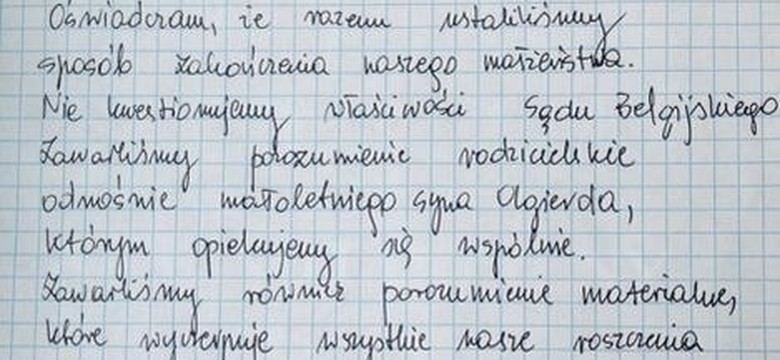 Oświadczam, że razem ustaliliśmy
sposób zakończenia naszego małżeństwa.
Nie kwestionujemy właściwości Sądu Belgijskiego
Zawarliśmy porozumienie rodzicielskie
odnośnie małoletniego syna Olgierda,
którym opiekujemy się wspólnie.
Zawarliśmy również porozumienie materialne,
które wyczerpuje wszystkie nasze roszczenia